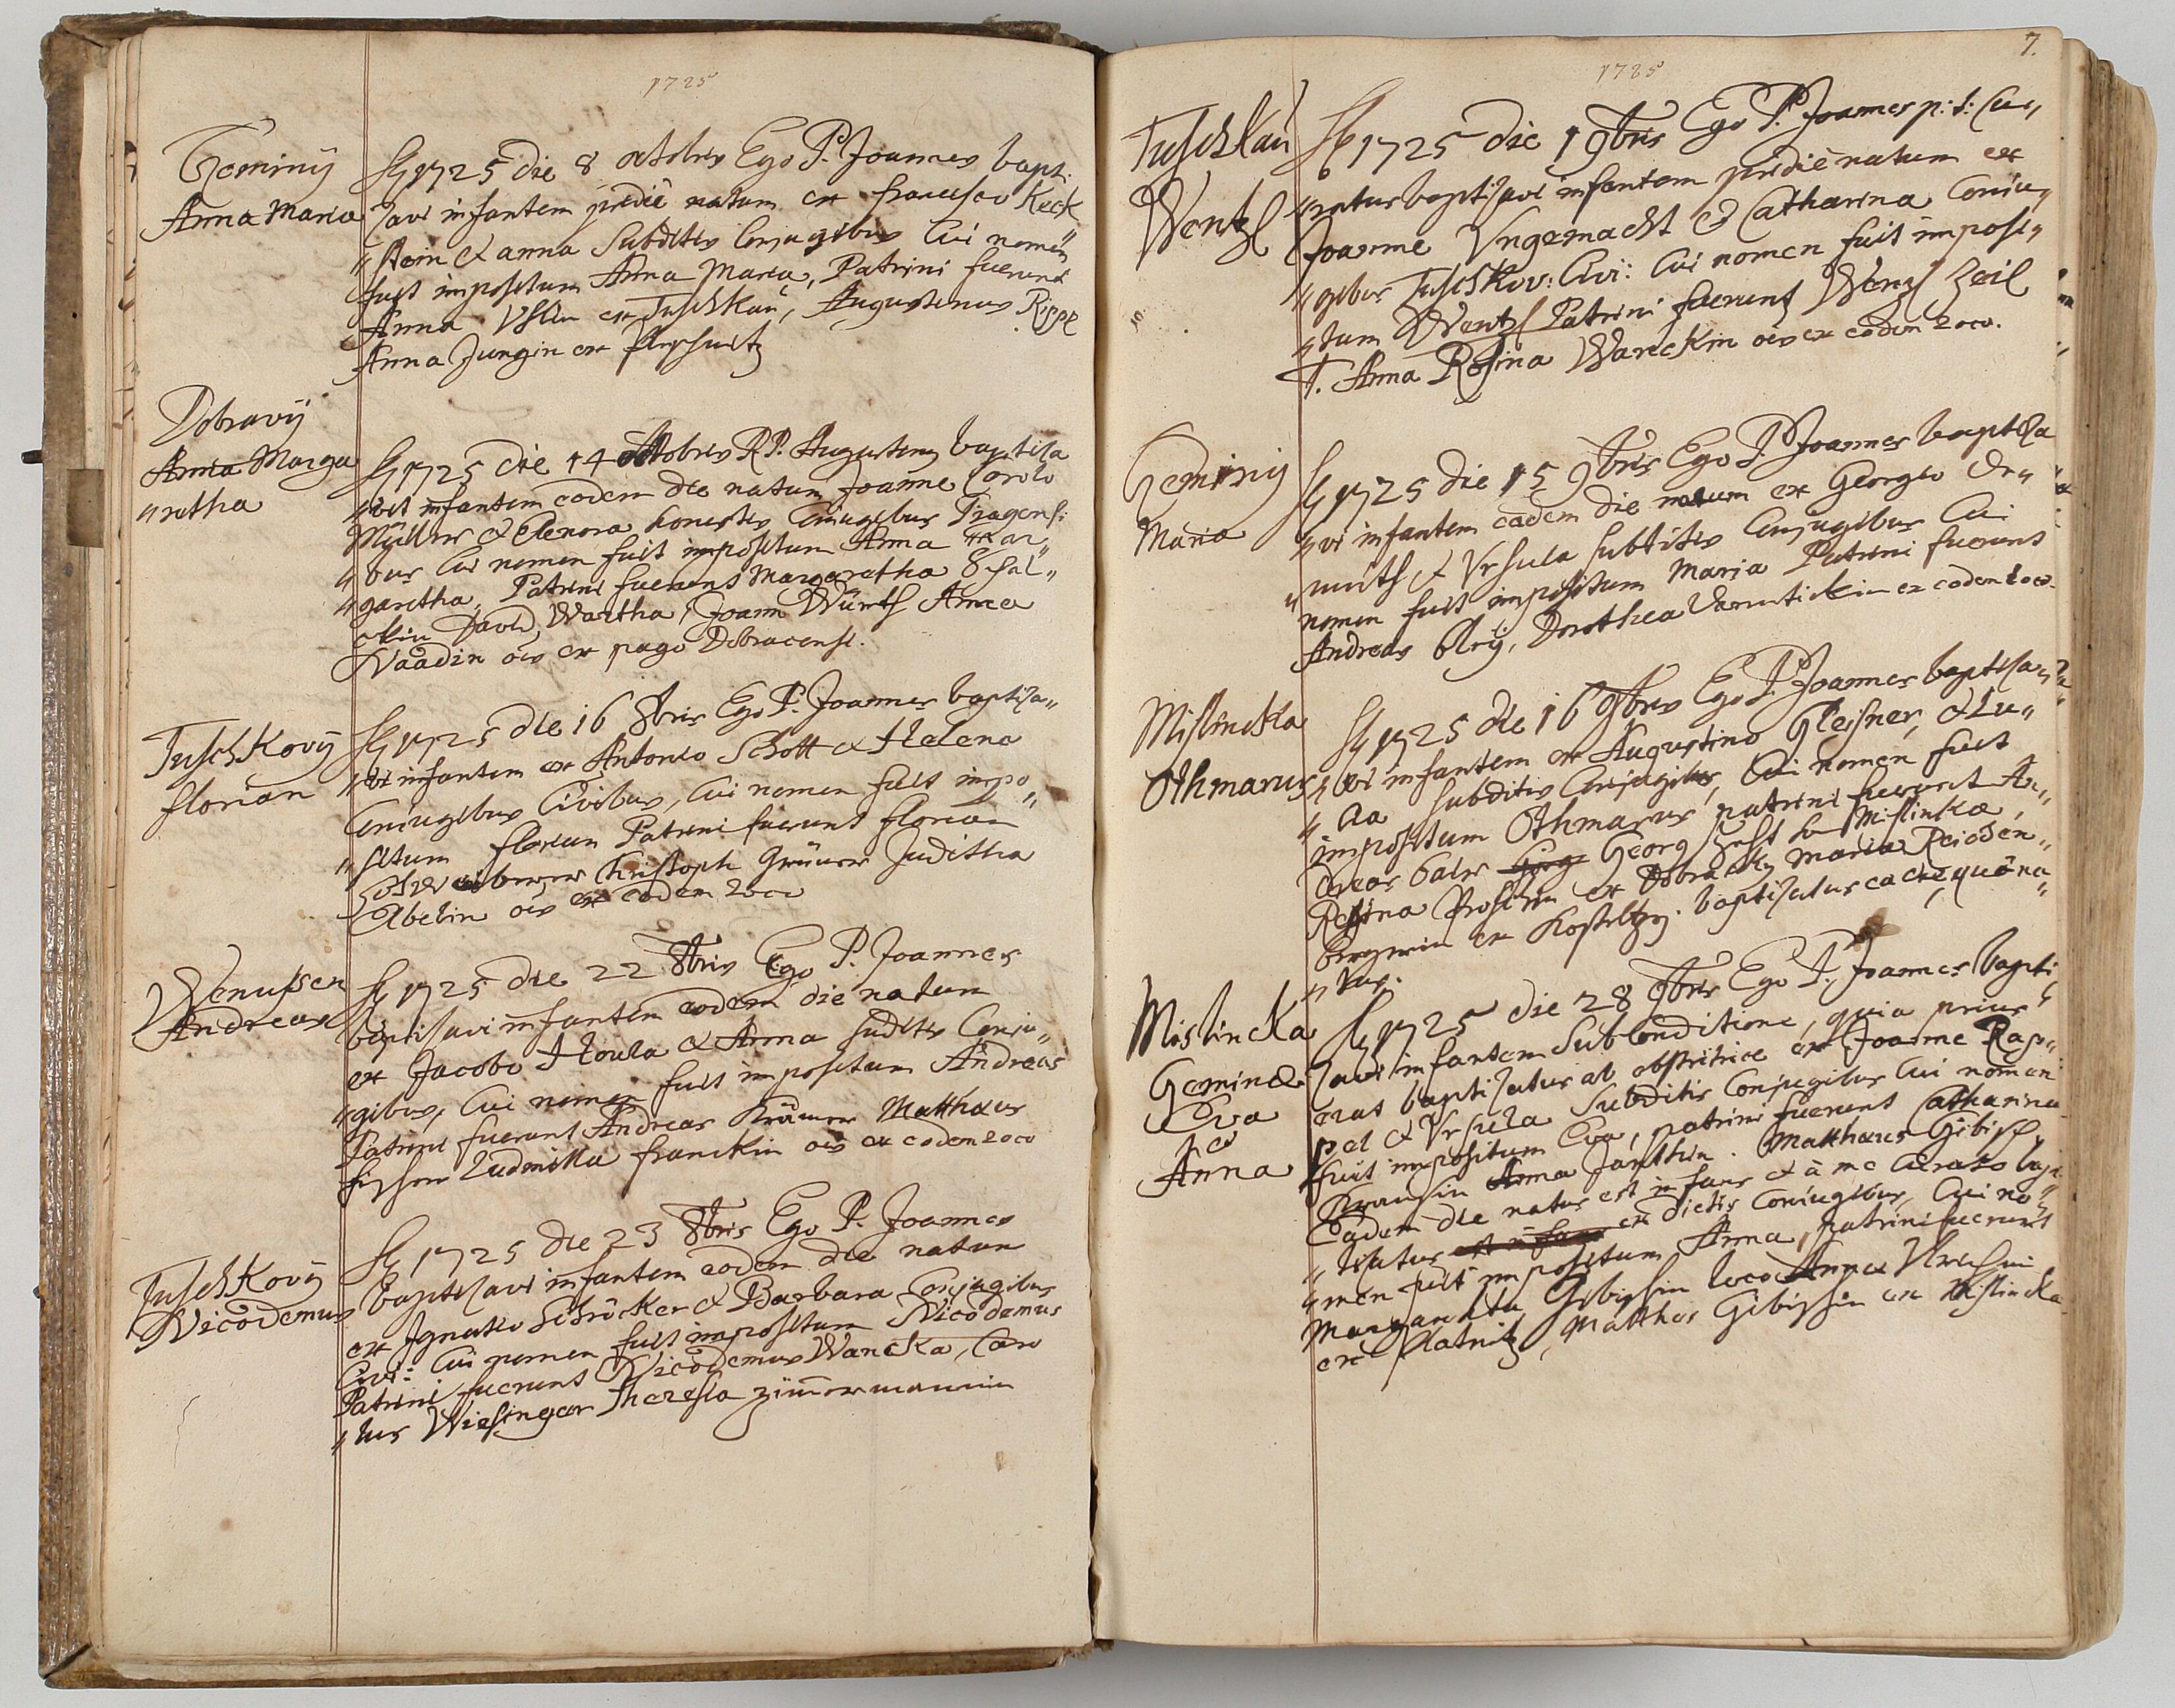 1725
Geminÿ
Anna Maria
A 1725 die 8 octobris Ego P. Joannes bapt:
zavi infantem pridie natum ex francisco Keck
"stein & anna Subditis Conjugibus Cui nomen
fuit impositum Anna Maria, Patrini fuerunt
Anna ex Tuschkau, Augustinus Rippl
Anna Jungin ex
Dobravÿ
Anna Marga
"retha
A 1725 die 14 Octobris RP. Augustin9 baptisa
"vit infantem eodem die natum Joanne Carolo
Müller & Elenora honestis Coniugibus Pragens:
"bus Cui nomen fuit impositum Anna Mar"
"garetha, Patrini fuerunt Margaretha
David, Wartha, Joann Würth Anna
Naadin oēs ex pago Dobracensi.
Tuschkovÿ
florian
A 1725 die 16 8bris Ego P. Joannes baptiza"
"vi infantem ex Antonio Schott & Helena
Coniugibus Civibus, Cui nomen fuit impo"
"situm florian Patrini fuerunt florian
Christoph Grüner Juditha
Abelin oēs ex eodem loco
Wenussen
Andreas
A 1725 die 22 8bris Ego P. Joannes
baptisavi infantem eodem die natum
ex Jacobo Houla & Anna suditis Conju"
"gibus, Cui nomen fuit impositum Andreas
Patrini fuerunt Andreas Krämer Matthæus
fischer Ludmilla franckin oēs ex eodem loco
Tuschkovÿ
Nicodemus
A 1725 die 23 8bris Ego P. Joannes
baptisavi infantem eodem die natum
ex Ignatio Schröcker & Barbara Conjugibus
Civi: Cui nomen fuit impositum Nicodemus
Patrini fuerunt Nicodemus Wancka, Caro
"lus Wiesinger Theresia Zimmermannin
7.
1725
Tuschkau
Wentzl
A 1725 die 1 9bris Ego P. Joannes p: t: Cu"
"ratus baptisavi infantem pridie natum ex
Joanne Ungemacht & Catharina Coniu"
"gibus Tuschkov: Civi: Cui nomen fuit imposi"
"tum Wentzl Patrini fuerunt Wenzl Zeil
T. Anna Rosina Wanckin oēs ex eodem loco.
Geminÿ
Maria
A 1725 die 15 9bris Ego P. Joannes baptiza
"vi infantem eadem die natum ex Georgio
& Ursula subditis Conjugibus Cui
nomen fuit impositum Maria Patrini fuerunt
Andreas Dorothea ex eodem loco
Mislincka
Othmarus
A 1725 die 16 9bris Ego P. Joannes baptisa"
"vi infantem ex Augustino Gleisner, & Lu"
subditis Conjugibus, Cui nomen fuit
impositum Othmarus patrini fuerunt An"
Georg Mislinka,
Regina ex Dobracky Maria
ex baptisatus
Mislincka
Gemindi
Eva
&
Anna
A 1725 die 28 9bris Ego P. Joannes bapti
zavi infantem Sub Conditione, quia prius
erat baptisatus ab obstetrice ex Joanne Rasp"
pel & Ursula Subditis Conjugibus Cui nomen
fuit impositum Eva, patrini fuerunt Catharina
Anna Matthæus Gibisch
Eadem die natus est infans & à me Curato bap"
"tisatus ex dictis Coniugibus, Cui no"
"men fuit impositum Anna, patrini fuerunt
Margaretha Gibischin loco Annæ
ex Matthes Gibischin ex Mislincka